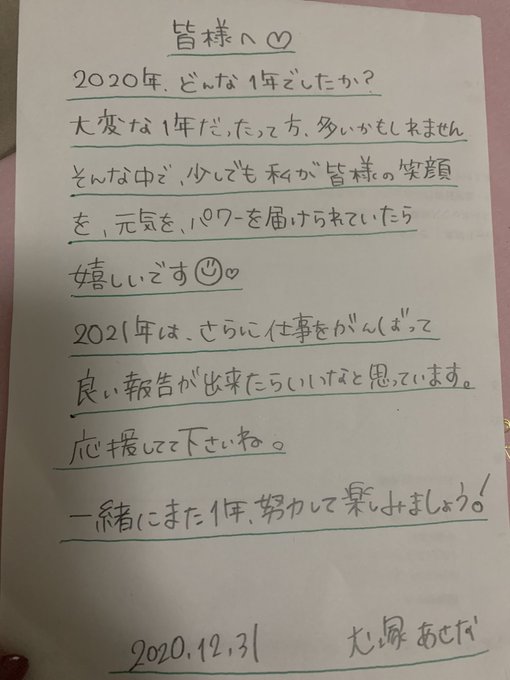 皆様へ♡
2020年、どんな1年でしたか？
大変な1年だったって方、多いかもしれません
そんな中で、少しでも私が皆様の笑顔
を、元気を、パワーを届けられていたら
嬉しいです☺♡
2021年は、さらに仕事をがんばって
良い報告が出来たらいいなと思っています。
応援してて下さいね。
一緒にまた1年、努力して楽しみましょう！
2020.12.31 犬塚あさな